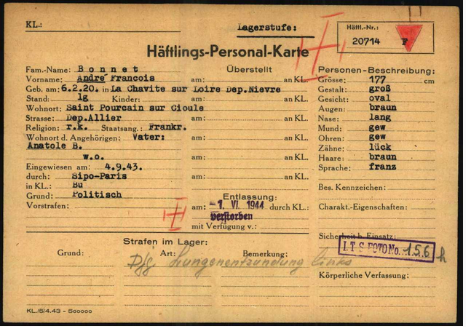 KL.:
Lagerstufe:
Häftl.-Nr.:
20714
F
Häftlings-Personal-Karte
Fam.-Name: Bonnet
Vorname: André Francois
Geb. am: 6.2.20. in La Chavite sur Loire Dep.Nievre
Stand: lg Kinder:
Wohnort: Saint Pourcain sur Cioule
Strasse: Dep.Allier
Religion: r.k. Staatsang.: Frankr.
Wohnort d. Angehörigen: Vater:
Anatole B.
w.o.
Eingewiesen am: 4.9.43.
durch: Sipo-Paris
in KL.: Bu
Grund: Politisch
Vorstrafen:
Überstellt
am: an KL.
am: an KL.
am: an KL.
am: an KL.
am: an KL.
am: an KL.
Entlassung:
am: -1. VI. 1944 durch KL.:
Verstorben
mit Verfügung v.:
Personen-Beschreibung:
Grösse: 177 cm
Gestalt: groß
Gesicht: oval
Augen: braun
Nase: lang
Mund: gew
Ohren: gew
Zähne: lück
Haare: braun
Sprache: franz
Bes. Kennzeichen:
Charakt.-Eigenschaften:
Sicherheit b. Einsatz:
I.T.S. FOTO No. 156
Körperliche Verfassung:
Strafen im Lager:
Grund: Art: Bemerkung:
Lungenentzündung links
KL./5/4.43 -